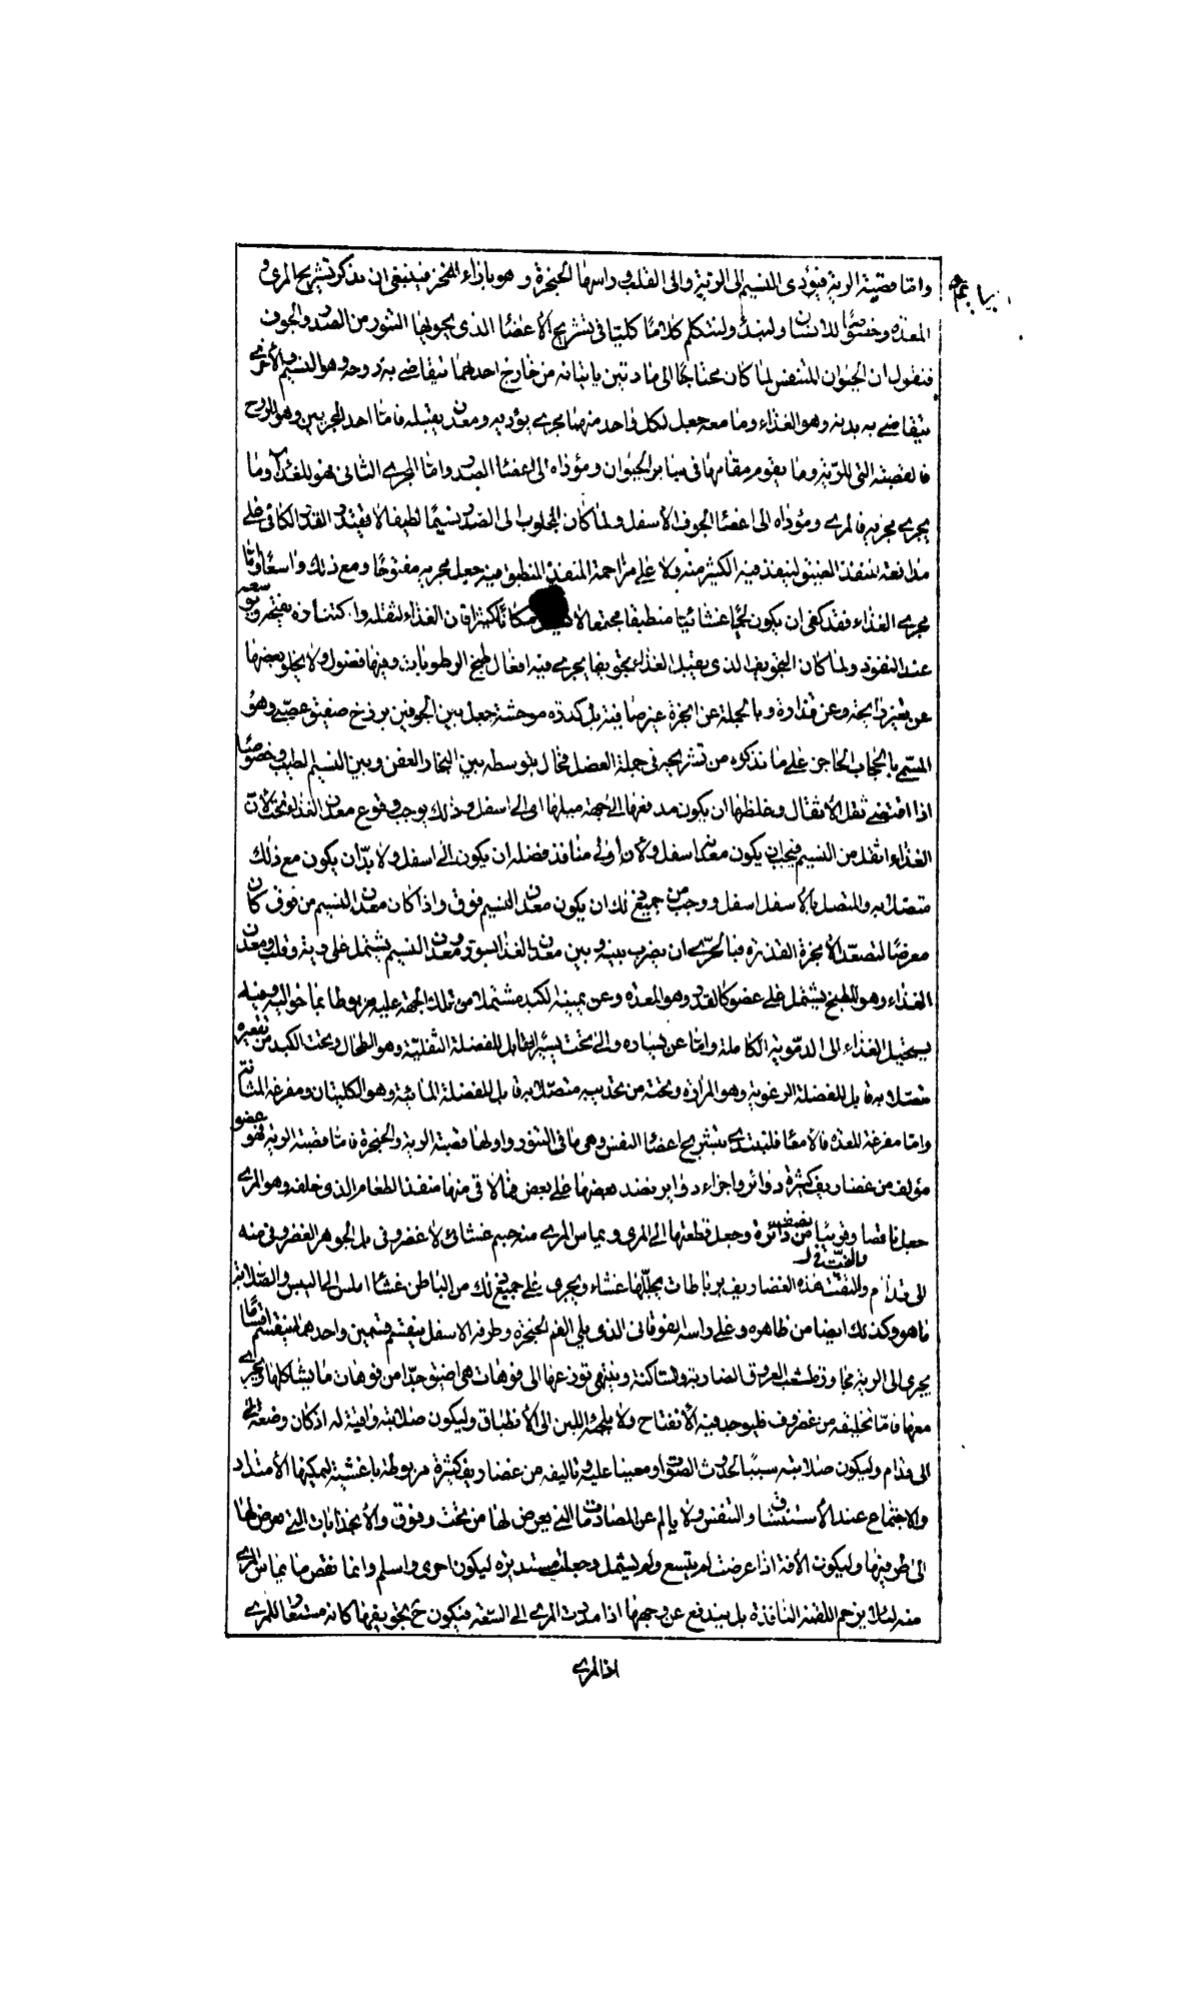 واما قصبة الرية فيؤدى النسيم الى الرية والى القلب وراسها الحنجرة وهو بازاء المنخر فينبغى ان نذكر تشريح المرى و
المعدة وخصوصًا للانسان ولنبدأ ولنتكلم كلامًا كليا فى تشريح الاعضاء الذى يحويها التنور من الصدر والجوف
فنقول ان الحيوان المتنفس لما كان محتاجًا الى مادتين ياتيانه من خارج احدهما يتقاضى به روحه وهو النسيم والاخرى
يتقاضى به بدنه وهو الغذاء وما معه جعل لكل واحد منهما مجرى يؤديه ومعدن يقبله فاما احد المجريين وهو للروح
فالقصبة التى للرية وما يقوم مقامها فى سائر الحيوان ومؤداه الى اعضاء الصدر واما المجرى الثانى فهو للغذاء وما
يجرى مجريه فالمرى ومؤداه الى اعضاء الجوف الاسفل ولما كان المجلوب الى الصدر نسيمًا لطيفا لا يقتدر القدر الكافى على
مدافعة المنفذ الضيق لينفذ فيه الكثير منه ولا على مزاحمة المنفذ المنطبق فيه جعل مجريه مفتوحًا ومع ذلك واسعًا واما
مجرى الغذاء فقد كفى ان يكون لحميا غشائيا منطبقا مجتمعا لا مكانًا كثيرا فان الغذاء لثقله واكتنازه يفتحه ويوسعه
عند النفوذ ولما كان التجويف الذى يقبل الغذاء تجويفا يجرى فيه افعال طبخ الرطوبات وفيها فضول ولا يخلو بعضها
عن تغير رائحة وعن قذارة وبالجملة عن ابخرة غير صافية بل كدرة موحشة جعل بين الجوفين برزخ صفيق عصبى وهو
المسمى بالحجاب الحاجز على ما نذكره من تشريحه فى جملة العضل فحال بتوسطه بين البخار العفن وبين النسيم الطيب وخصوصًا
اذا اقتضى ثقل الاثقال وغلظها ان يكون مدفعها الى جهة ميلها اى الى اسفل وذلك يوجب وقوع معدن الغذاء تحت لان
الغذاء اثقل من النسيم فيجب ان يكون معدنه اسفل ولان اولى منافذ فضله ان يكون الى اسفل ولا بد ان يكون مع ذلك
متصلا به والمتصل بالاسفل اسفل ووجب من جميع ذلك ان يكون معدن النسيم فوق واذا كان معدن النسيم من فوق كان
معرضًا لتصعد الابخرة القذرة فبالحرى ان يضرب بينه وبين معدن الغذاء السور ومعدن النسيم يشتمل على رية وقلب ومعدن
الغذاء وهو للطبخ يشتمل على عضو كالقدر وهو المعدة وعن يمينه لكبد مشتملا من تلك الجهة عليه مربوطا بما حواليه وفيه
يستحيل الغذاء الى الدموية الكاملة واما عن يساره والى تحت يسيرا فقابل للفضلة الثفلية وهو الطحال وتحت الكبد من تقعيره
متصلا به قابل للفضلة الرغوية وهو المرارة وتحته من تحدبه متصلا به قابل للفضلة المائية وهو الكليتان ومفرغه المثانة
واما مفرغة المعدة فالامعاء فلنبتدى بتشريح اعضاء النفس وهى ما فى التنور واولها قصبة الرية والحنجرة فاما قصبة الرية فهو عضو
مؤلف من غضاريف كثيرة دوائر واجزاء دواير بعضد بعضها على بعض فما لاقى منها منفذ الطعام الذى خلفه وهو المرى
جعل ناقصا وقريبا من نصف دائرة وجعل قطعتها الى المرى ويماس المرى منه جسم غشائى لا غضروفى بل الجوهر الغضروفى منه
والفيت فى
الى قدام والتفت هذه الغضاريف برباطات يجللها غشاء ويجرى على جميع ذلك من الباطن غشاء املس الى اليبس والصلابة
ما هو وكذلك ايضا من ظاهره وعلى راسه الفوقانى الذى يلى الفم الحنجرة وطرفه الاسفل ينقسم قسمين واحدهما ينقسم اقسامًا
يجرى الى الرية مجاورة لشعب العروق الضاربة والساكنة وينتهى توزعها الى فوهات هى اضيق جدًا من فوهات ما يشاكلها ويجرى
معها فاما تخليقه من غضروف فليوجد فيه الانفتاح ولا يلجئه اللين الى الانطباق وليكون صلابته واقية له اذ كان وضعه
الى قدام وليكون صلابته سببًا لحدوث الصوت او معينا عليه وتاليفه من غضاريف كثيرة مربوطة باغشية ليمكنها الامتداد
والاجتماع عند الاستنشاق والتنفس ولا يالم عن المصادمات التى يعرض لها من تحت وفوق والانجذابات التى تعرض لها
الى طرفيها وليكون الافة اذا عرضت لم يتسع ولم يشتمل وجعلت مستديرة ليكون احوى واسلم وانما نقص ما يماس المرى
منه لئلا يزحم اللقمة النافذة بل يندفع عن وجهها اذا مددت المرى الى السعة فيكون ح تجويفها كانه مستعار للمرى
اذ المرى